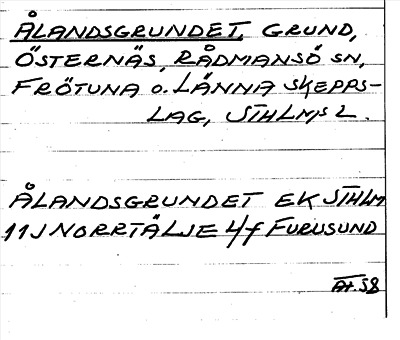 ÅLANDSGRUNDET, GRUND,
ÖSTERNÄS, RÅDMANSÖ SN,
FRÖTUNA o. LÄNNA SKEPPS-
LAG, STHLMS L.
ÅLANDSGRUNDET EK STHLM
11J NORRTÄLJE 4/f FURUSUND
At. 58